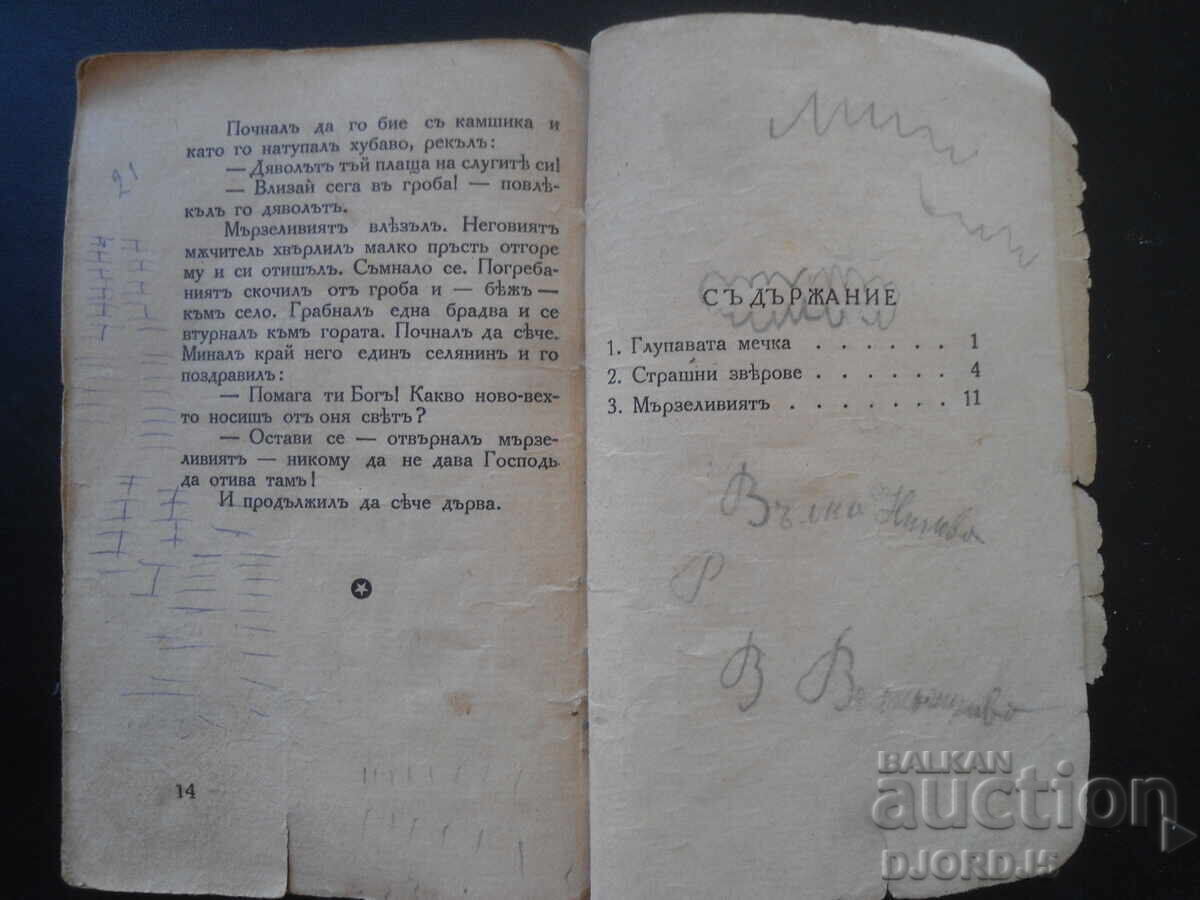 Почналъ да го бие съ камшика и
като го натупалъ хубаво, рекълъ:
— Дяволътъ тъй плаща на слугитѣ си!
— Влизай сега въ гроба! — повлѣ-
кълъ го дяволътъ.
Мързеливиятъ влѣзълъ. Неговиятъ
мѫчитель хвърлилъ малко пръсть отгоре
му и си отишълъ. Съмнало се. Погреба-
ниятъ скочилъ отъ гроба и — бѣжъ —
къмъ село. Грабналъ една брадва и се
втурналъ къмъ гората. Почналъ да сѣче.
Миналъ край него единъ селянинъ и го
поздравилъ:
— Помага ти Богъ! Какво ново-вех-
то носишъ отъ оня свѣтъ?
— Остави се — отвърналъ мързе-
ливиятъ — никому да не дава Господь
да отива тамъ!
И продължилъ да сѣче дърва.
14
21
СЪДЪРЖАНИЕ
1. Глупавата мечка . . . . . . 1
2. Страшни звѣрове . . . . . . 4
3. Мързеливиятъ . . . . . . . 11
Р
В
BALKAN
auction
DJORDJ5